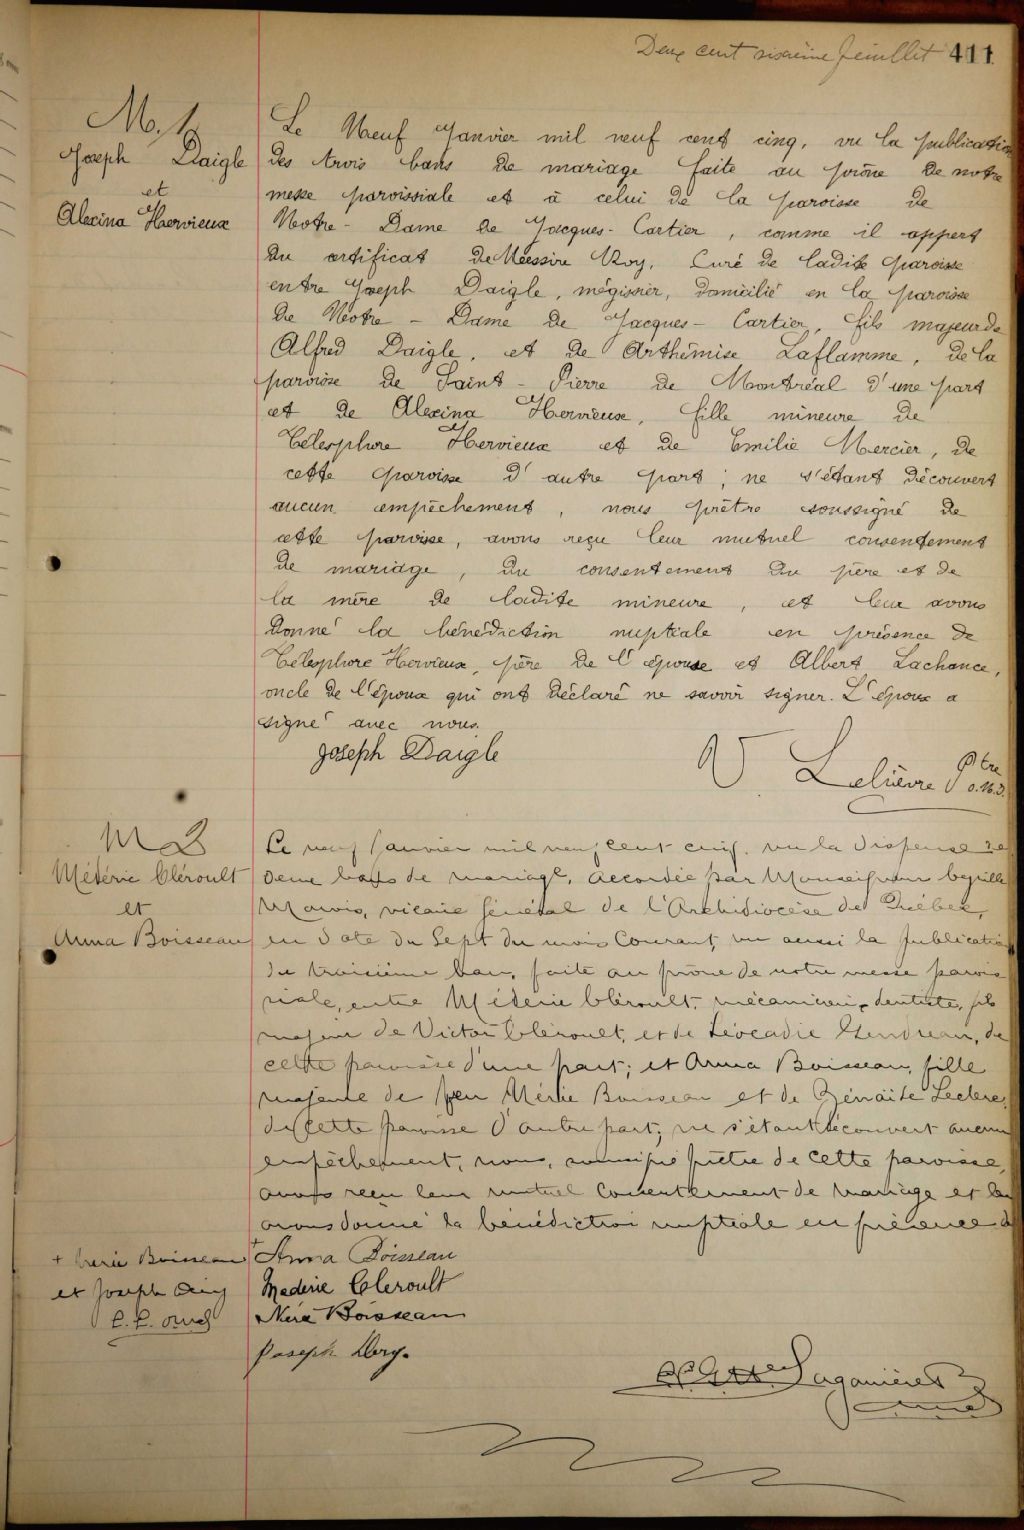 Deux cent sixième feuillet 411
M. 1
Joseph Daigle
et
Alexina Hervieux
Le Neuf Janvier mil neuf cent cinq, vu la publication
des trois bans de mariage faite au prône de notre
messe paroissiale et à celui de la paroisse de
Notre-Dame de Jacques-Cartier, comme il appert
du certificat de Messire Roy, Curé de ladite paroisse
entre Joseph Daigle, mégissier, domicilié en la paroisse
de Notre-Dame de Jacques-Cartier, fils majeur de
Alfred Daigle, et de Arthémise Laflamme, de la
paroisse de Saint-Pierre de Montréal d'une part
et de Alexina Hervieux, fille mineure de
Télesphore Hervieux et de Emilie Mercier, de
cette paroisse d'autre part; ne s'étant découvert
aucun empêchement, nous prêtre soussigné de
cette paroisse, avons reçu leur mutuel consentement
de mariage, du consentement du père et de
la mère de ladite mineure, et leur avons
donné la bénédiction nuptiale en présence de
Télesphore Hervieux, père de l'épouse et Albert Lachance,
oncle de l'époux qui ont déclaré ne savoir signer. L'époux a
signé avec nous.
Joseph Daigle
V. Lelièvre Ptre
o.m.i.
M 2
Médéric Cléroult
et
Anna Boisseau
Le neuf Janvier mil neuf cent cinq, vu la dispense de
deux bans de mariage, accordée par Monseigneur Cyrille
Marois, vicaire général de l'Archidiocèse de Québec,
en date du Sept du mois Courant, vu aussi la publication
du troisième ban, faite au prône de notre messe parois
siale, entre Médéric Cléroult, mécanicien-dentiste, fils
majeur de Victor Cléroult, et de Léocadie Gendreau, de
cette paroisse d'une part; et Anna Boisseau, fille
majeure de feu Nérée Boisseau et de Zénaïde Leclerc,
de cette paroisse d'autre part; ne s'étant découvert aucun
empêchement, nous, soussigné prêtre de cette paroisse,
avons reçu leur mutuel consentement de mariage et leur
avons donné la bénédiction nuptiale en présence de
+ Nérée Boisseau
et Joseph Déry
+ Anna Boisseau
Mederic Cleroult
Néré Boisseau
Joseph Dery.
Laganière